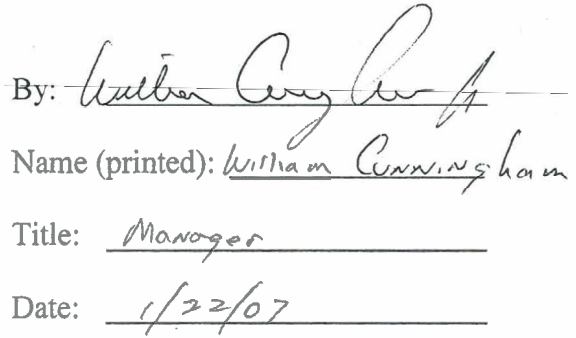 By: William Cunningham Jr
Name (printed): William Cunningham
Title: Manager
Date: 1/22/07